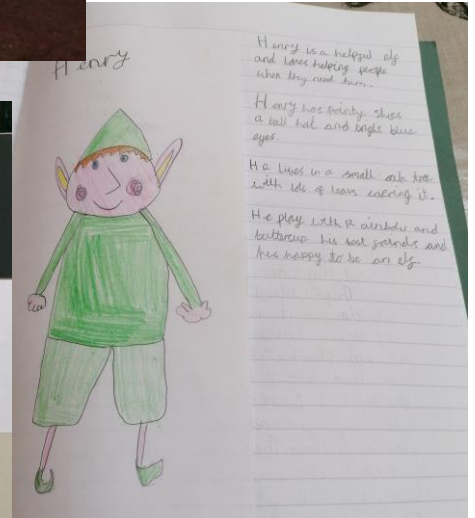 Henry
Henry is a helpful elf
and loves helping people
when they need him.
Henry has pointy shoes
a tall hat and bright blue
eyes.
He lives in a small oak tree
with lots of leaves covering it.
He play with Rainbow and
buttercup his best friends and
his happy to be an elf.